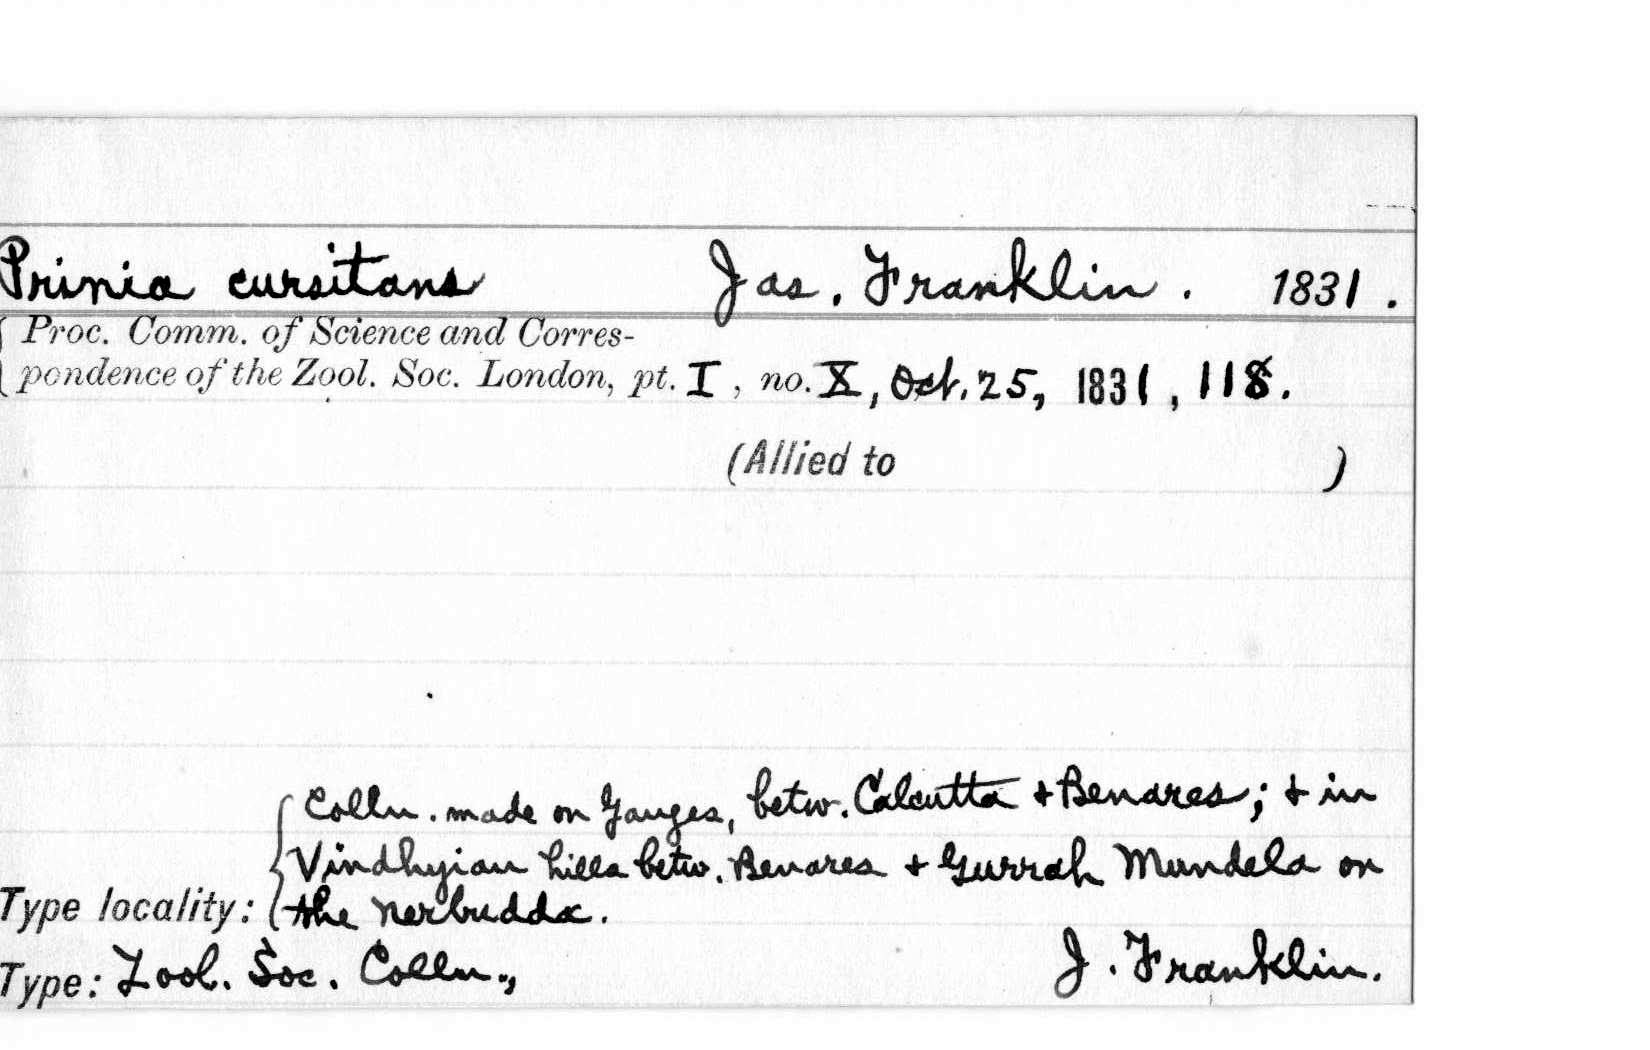 Prinia cursitans Jas. Franklin. 1831.
Proc. Comm. of Science and Corres-
pondence of the Zool. Soc. London, pt. I, no. X, Oct. 25, 1831, 118.
(Allied to )
Colln. made on Ganges, betw. Calcutta & Benares; & in
Vindhyian hills betw. Benares & Gurrah Mundela on
Type locality: the Nerbudda.
Type: Zool. Soc. Colln., J. Franklin.